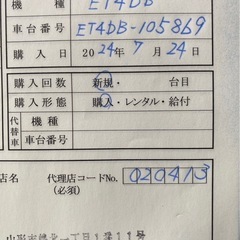 機種 ET4DB
車台番号 ET4DB-105869
購入日 2024年7月24日
購入回数 新規・ 台目
購入形態 購入・レンタル・給付
代替車 機種
車台番号
店名 代理店コードNo. 020413
(必須)
山形市緑北一丁目1番11号